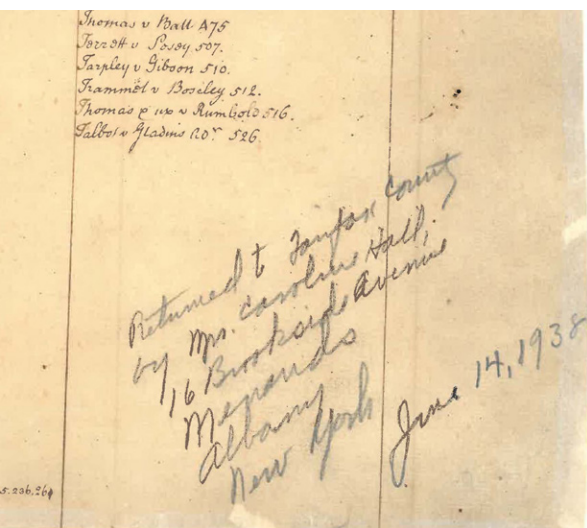 Thomas v Ball 475
Terrett v Posey 507.
Tarpley v Gibson 510.
Trammel v Boseley 512.
Thomas & ux v Rumbold 516.
Talbot v 526.
Returned to Fairfax County
by Mrs. Caroline Hall,
16 Brookside Avenue
Menands
Albany
New York
June 14, 1938
5.236.264